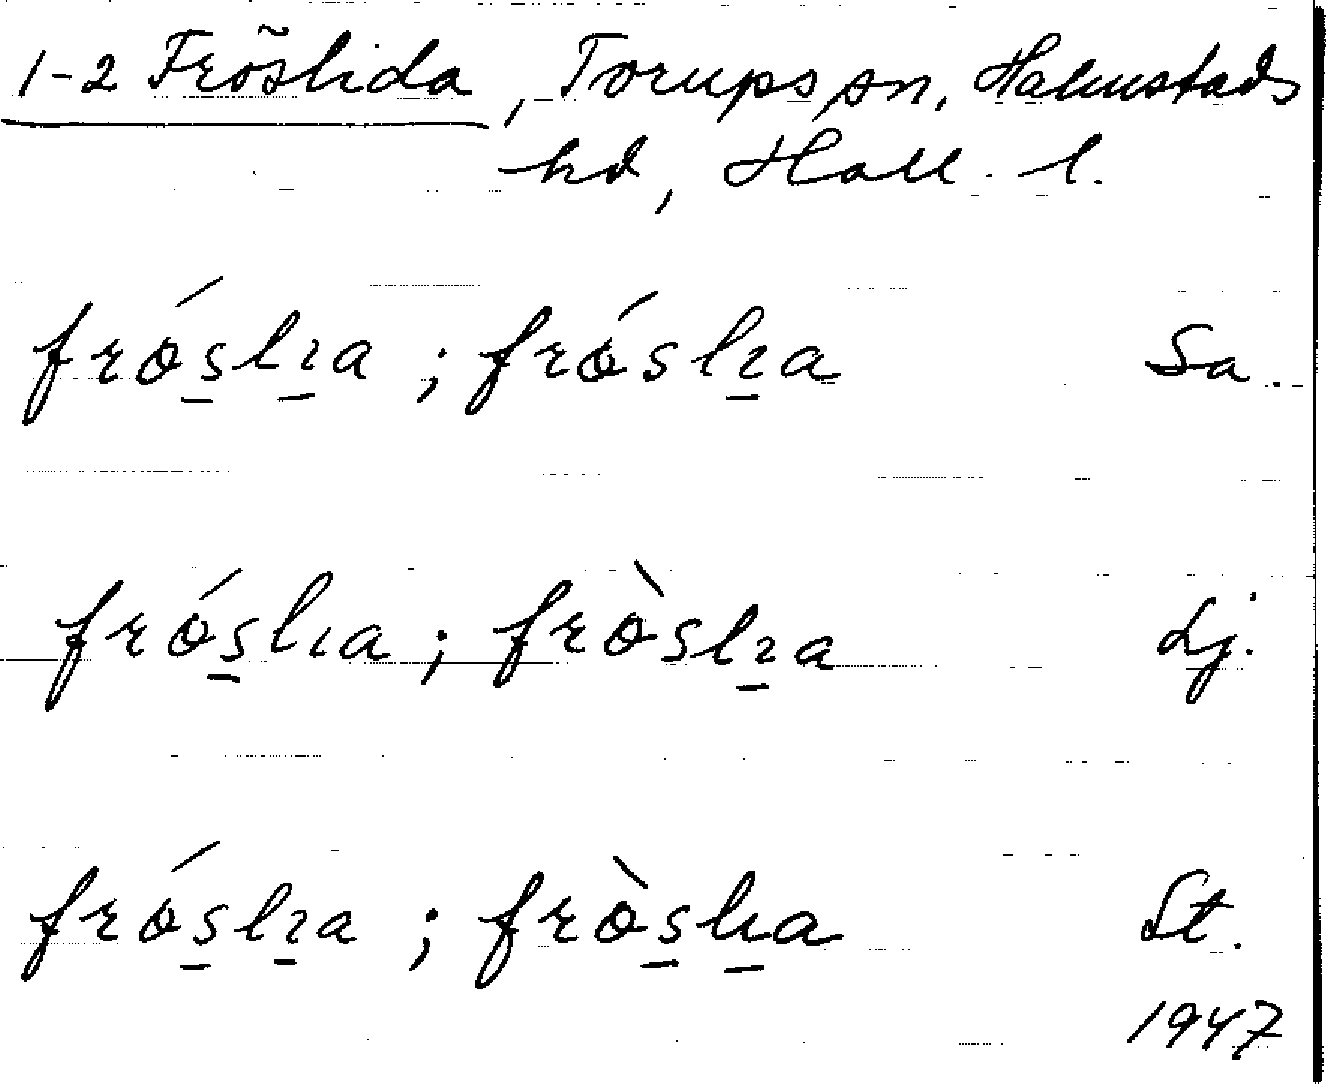 1-2 Fröslida, Torups sn, Halmstads
hd, Hall. l.
frǿs̲lı̲a ; frǿslı̲a Sa.
frǿs̲lıa ; frø̀slı̲a Lj.
frǿs̲lı̲a ; frø̀s̲lı̲a St.
1947